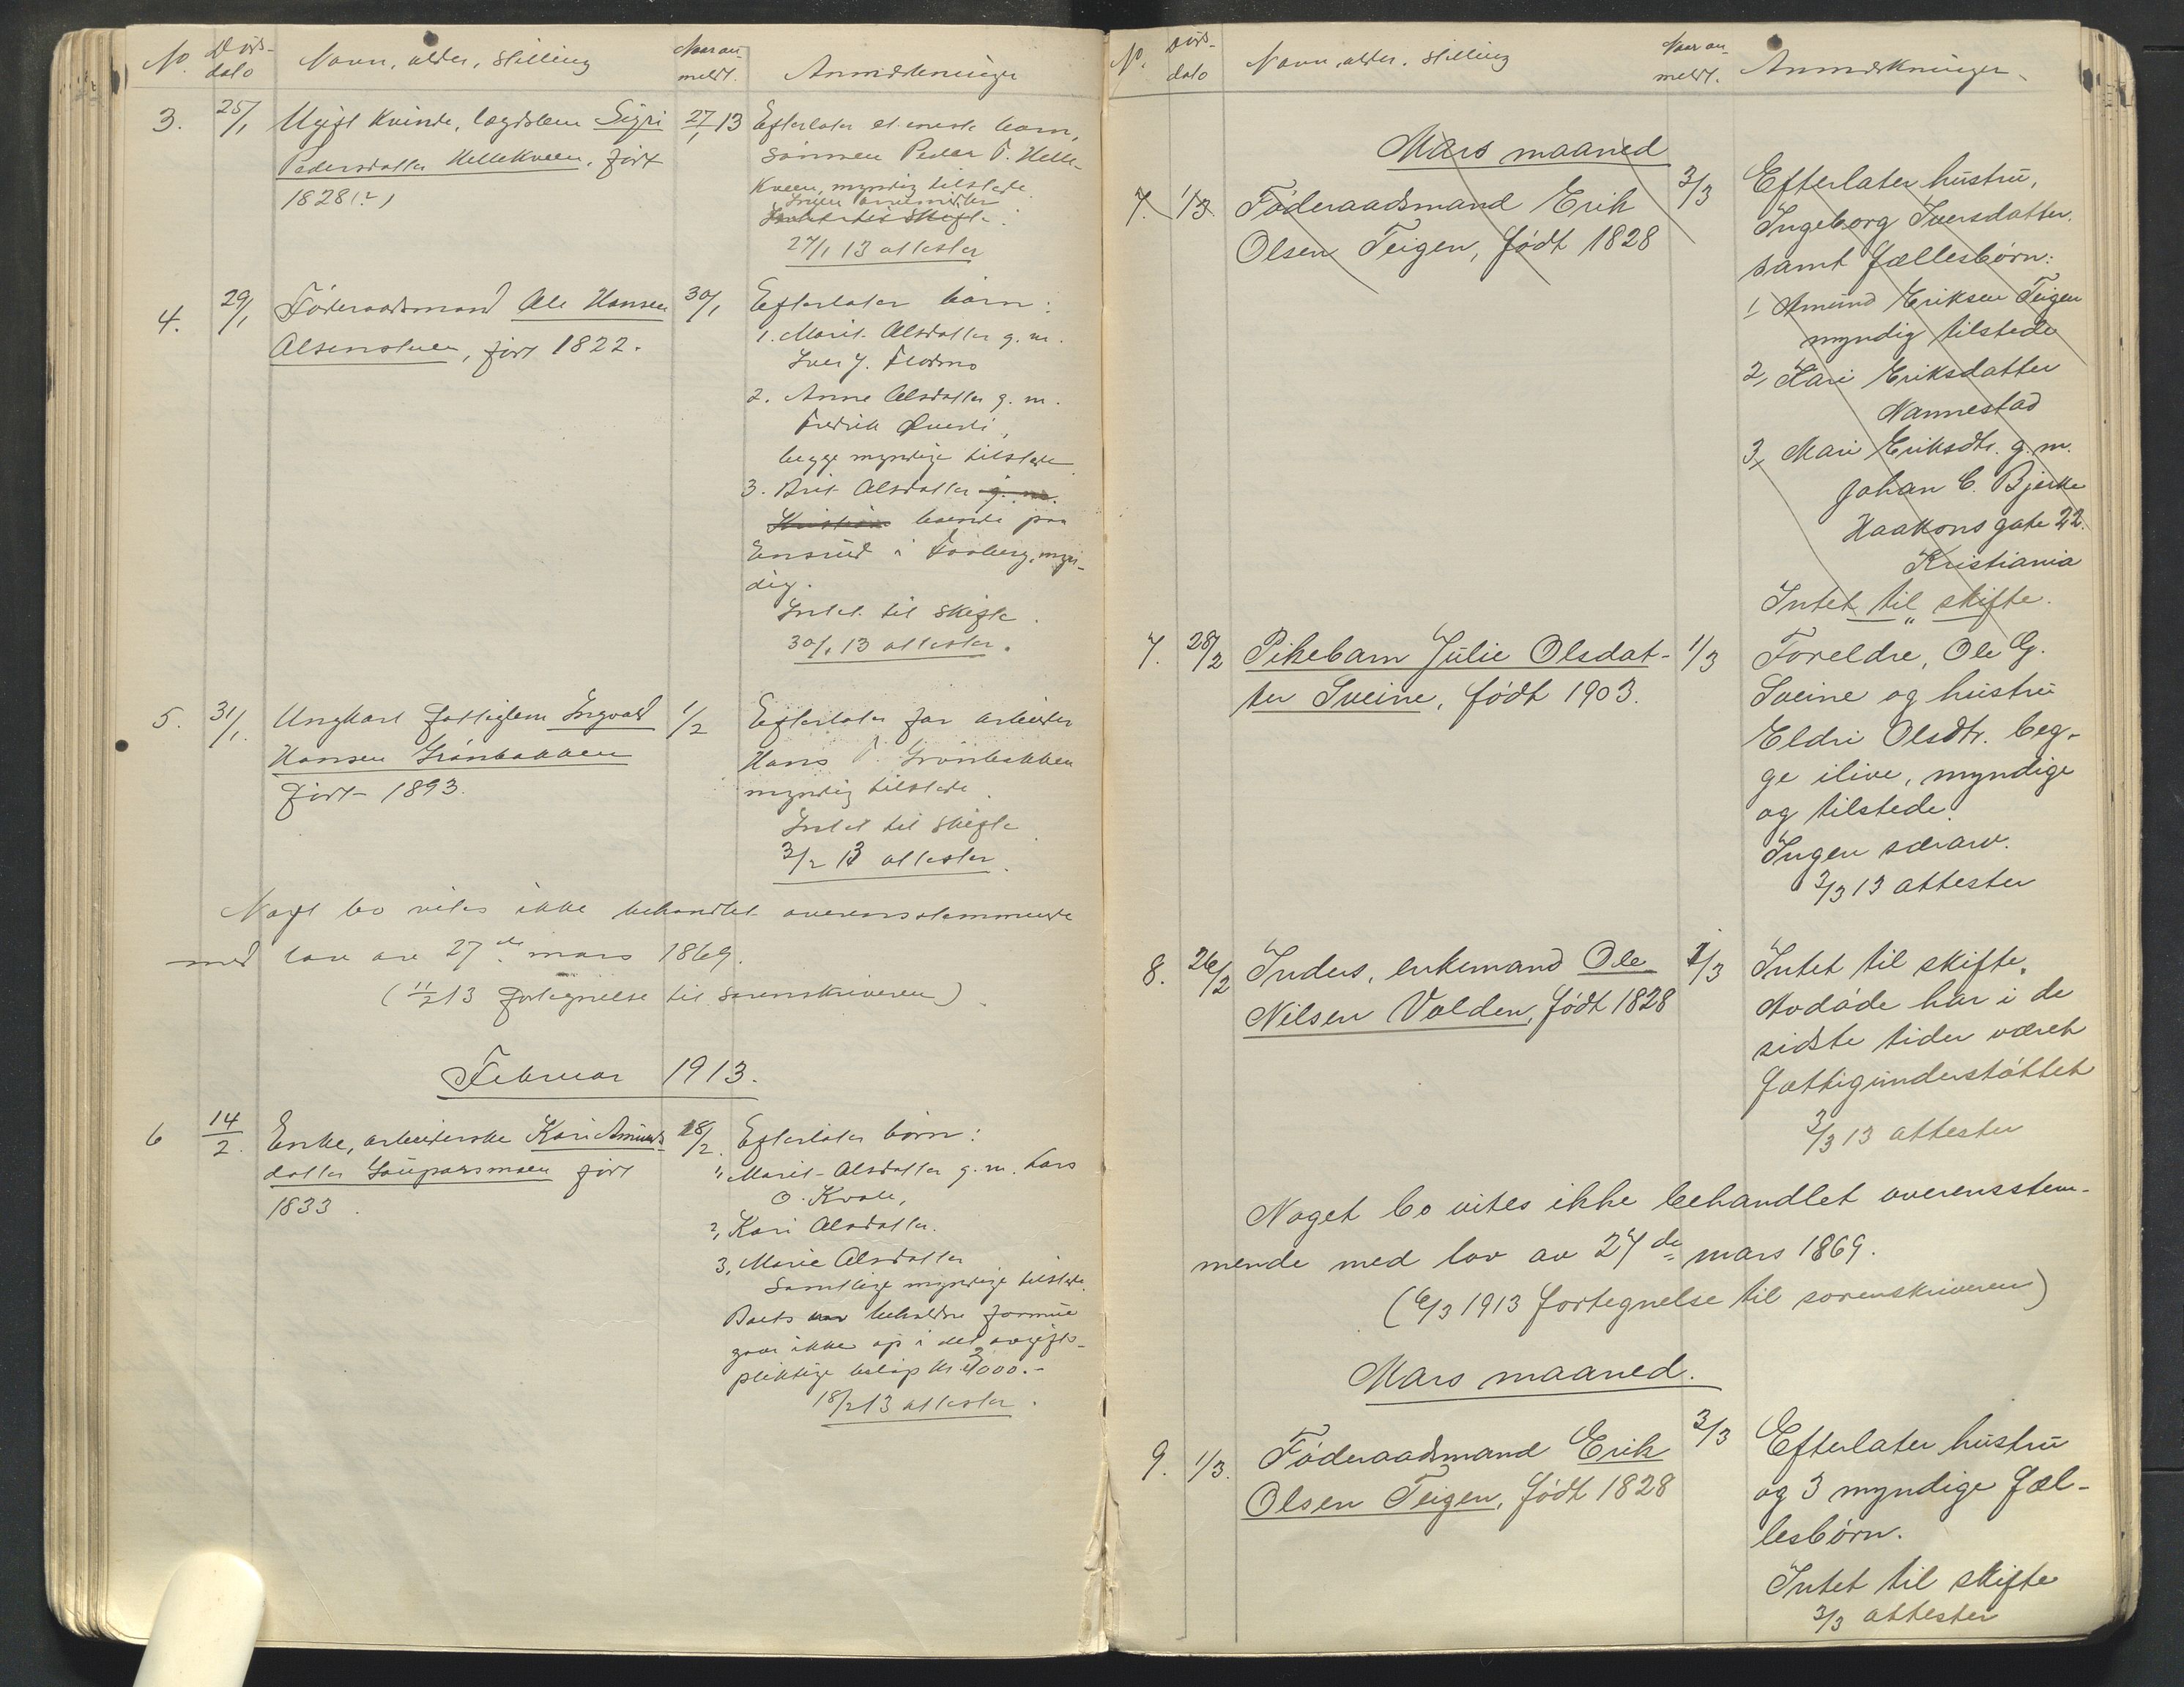 No. Døds-
dato
Navn, alder, stilling
Naar an-
meldt.
Anmerkninger
3. 25/1 Ugift Kvinde, lægdslem Sigri
Pedersdatter Hellekveen, født
1828(?)
27/1 13
Efterlater et eneste barn,
sønnen Peder P. Helle-
kveen, myndig tilstede
Ingen arvemidler
Intet til skifte.
27/1 13 attester
4. 29/1 Føderaadsmand Ole Hansen
Olsenstuen, født 1822.
30/1
Efterlater børn:
1. Marit Olsdatter g. m.
Iver J. Flodmo
2. Anne Olsdatter g. m.
Fredrik
begge myndige tilstede
3. Brit Olsdatter g. m.
Kristian boende paa
Ensrud i Faaberg, myn-
dig.
Intet til skifte.
30/1 13 attester.
5. 31/1. Ungkarl fattiglem Ingvald
Hansen Grønbakken
født 1893.
1/2
Efterlater far arbeider
Hans P. Grønbakken
myndig tilstede.
Intet til skifte.
3/2 13 attester.
Noget bo vites ikke behandlet overensstemmende
med lov av 27de mars 1869.
(11/2 13 fortegnelse til sorenskriveren).
Februar 1913.
6 14/2. Enke, arbeiderske Kari Amunds-
datter født
1833.
18/2.
Efterlater børn:
1, Marit Olsdatter g. m. Lars
O. Kvale,
2, Kari Olsdatter.
3, Marie Olsdatter
Samtlige myndige tilstede.
Boets beholdne formue
gaar ikke op i det avgifts-
pliktige beløp kr 2000.-
18/2 13 attester.
No. Døds-
dato
Navn, alder, stilling
Naar an-
meldt.
Anmerkninger.
Mars maaned
7. 1/3. Føderaadsmand Erik
Olsen Teigen, født 1828
3/3
Efterlater hustru,
Ingeborg Iversdatter.
samt fællesbørn:
1, Amund Eriksen Teigen
myndig tilstede
2, Kari Eriksdatter
Nannestad
3, Mari Eriksdtr. g. m.
Johan C. Bjerke
Haakons gate 22.
Kristiania
Intet til skifte.
7. 28/2 Pikebarn Julie Olsdat-
ter Sveine, født 1903.
1/3
Foreldre, Ole G.
Sveine og hustru
Eldri Olsdtr. beg-
ge ilive, myndige
og tilstede.
Ingen særarv.
3/3 13 attester
8. 26/2 Inders, enkemand Ole
Nilsen Volden, født 1828
1/3
Intet til skifte.
Avdøde har i de
sidste tider været
fattigunderstøttet
3/3 13 attester
Noget bo vites ikke behandlet overensstem-
mende med lov av 27de mars 1869.
(6/3 1913 fortegnelse til sorenskriveren)
Mars maaned.
9. 1/3. Føderaadsmand Erik
Olsen Teigen, født 1828
3/3
Efterlater hustru
og 3 myndige fæl-
lesbørn.
Intet til skifte
3/3 attester